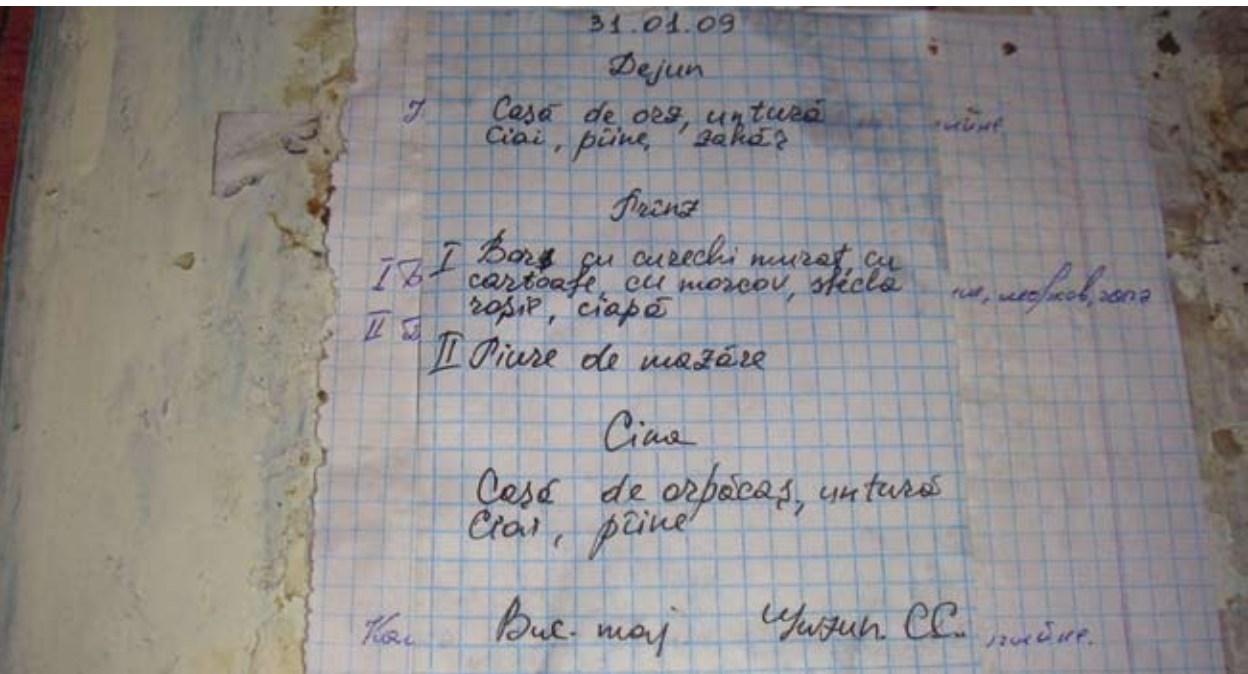 31.01.09
Dejun
Casă de orz, untură
Ciai, pîine, zahăr
Prînz
I Borș cu curechi murat cu
cartoafe, cu morcov, sfecla
roșie, ciapă
II Piure de mazăre
Cina
Casă de orpăcaș, untură
Ciai, pîine
Buc. maj
C.C.